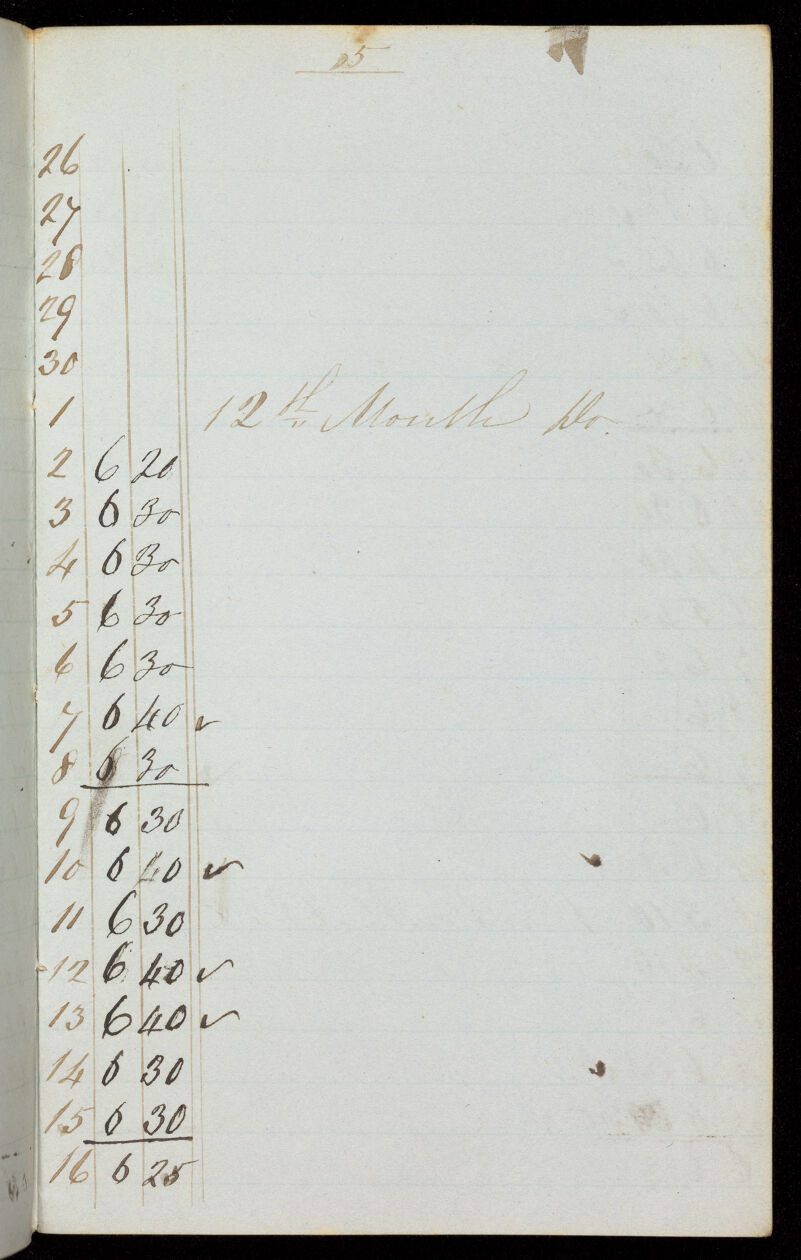 25
26
27
28
29
30
1 12th Month Do.
2 6 20
3 6 30
4 6 30
5 6 30
6 6 30
7 6 40 ✓
8 6 30
9 6 30
10 6 40 ✓
11 6 30
12 6 40 ✓
13 6 40 ✓
14 6 30
15 6 30
16 6 25